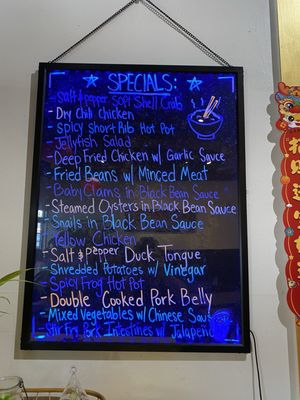 SPECIALS:
- salt & pepper Soft Shell Crab
- Dry Chili Chicken
- spicy short Rib Hot Pot
- Jellyfish Salad
- Deep Fried Chicken w/ Garlic Sauce
- Fried Beans w/ Minced Meat
- Baby Clams in Black Bean Sauce
- Steamed Oysters in Black Bean Sauce
- Snails in Black Bean Sauce
- Yellow Chicken
- Salt & pepper Duck Tongue
- Shredded Potatoes w/ Vinegar
- Spicy Frog Hot Pot
- Double Cooked Pork Belly
- Mixed Vegetables w/ Chinese Sausage
- Stir Fry Pork Intestines w/ Jalapeño